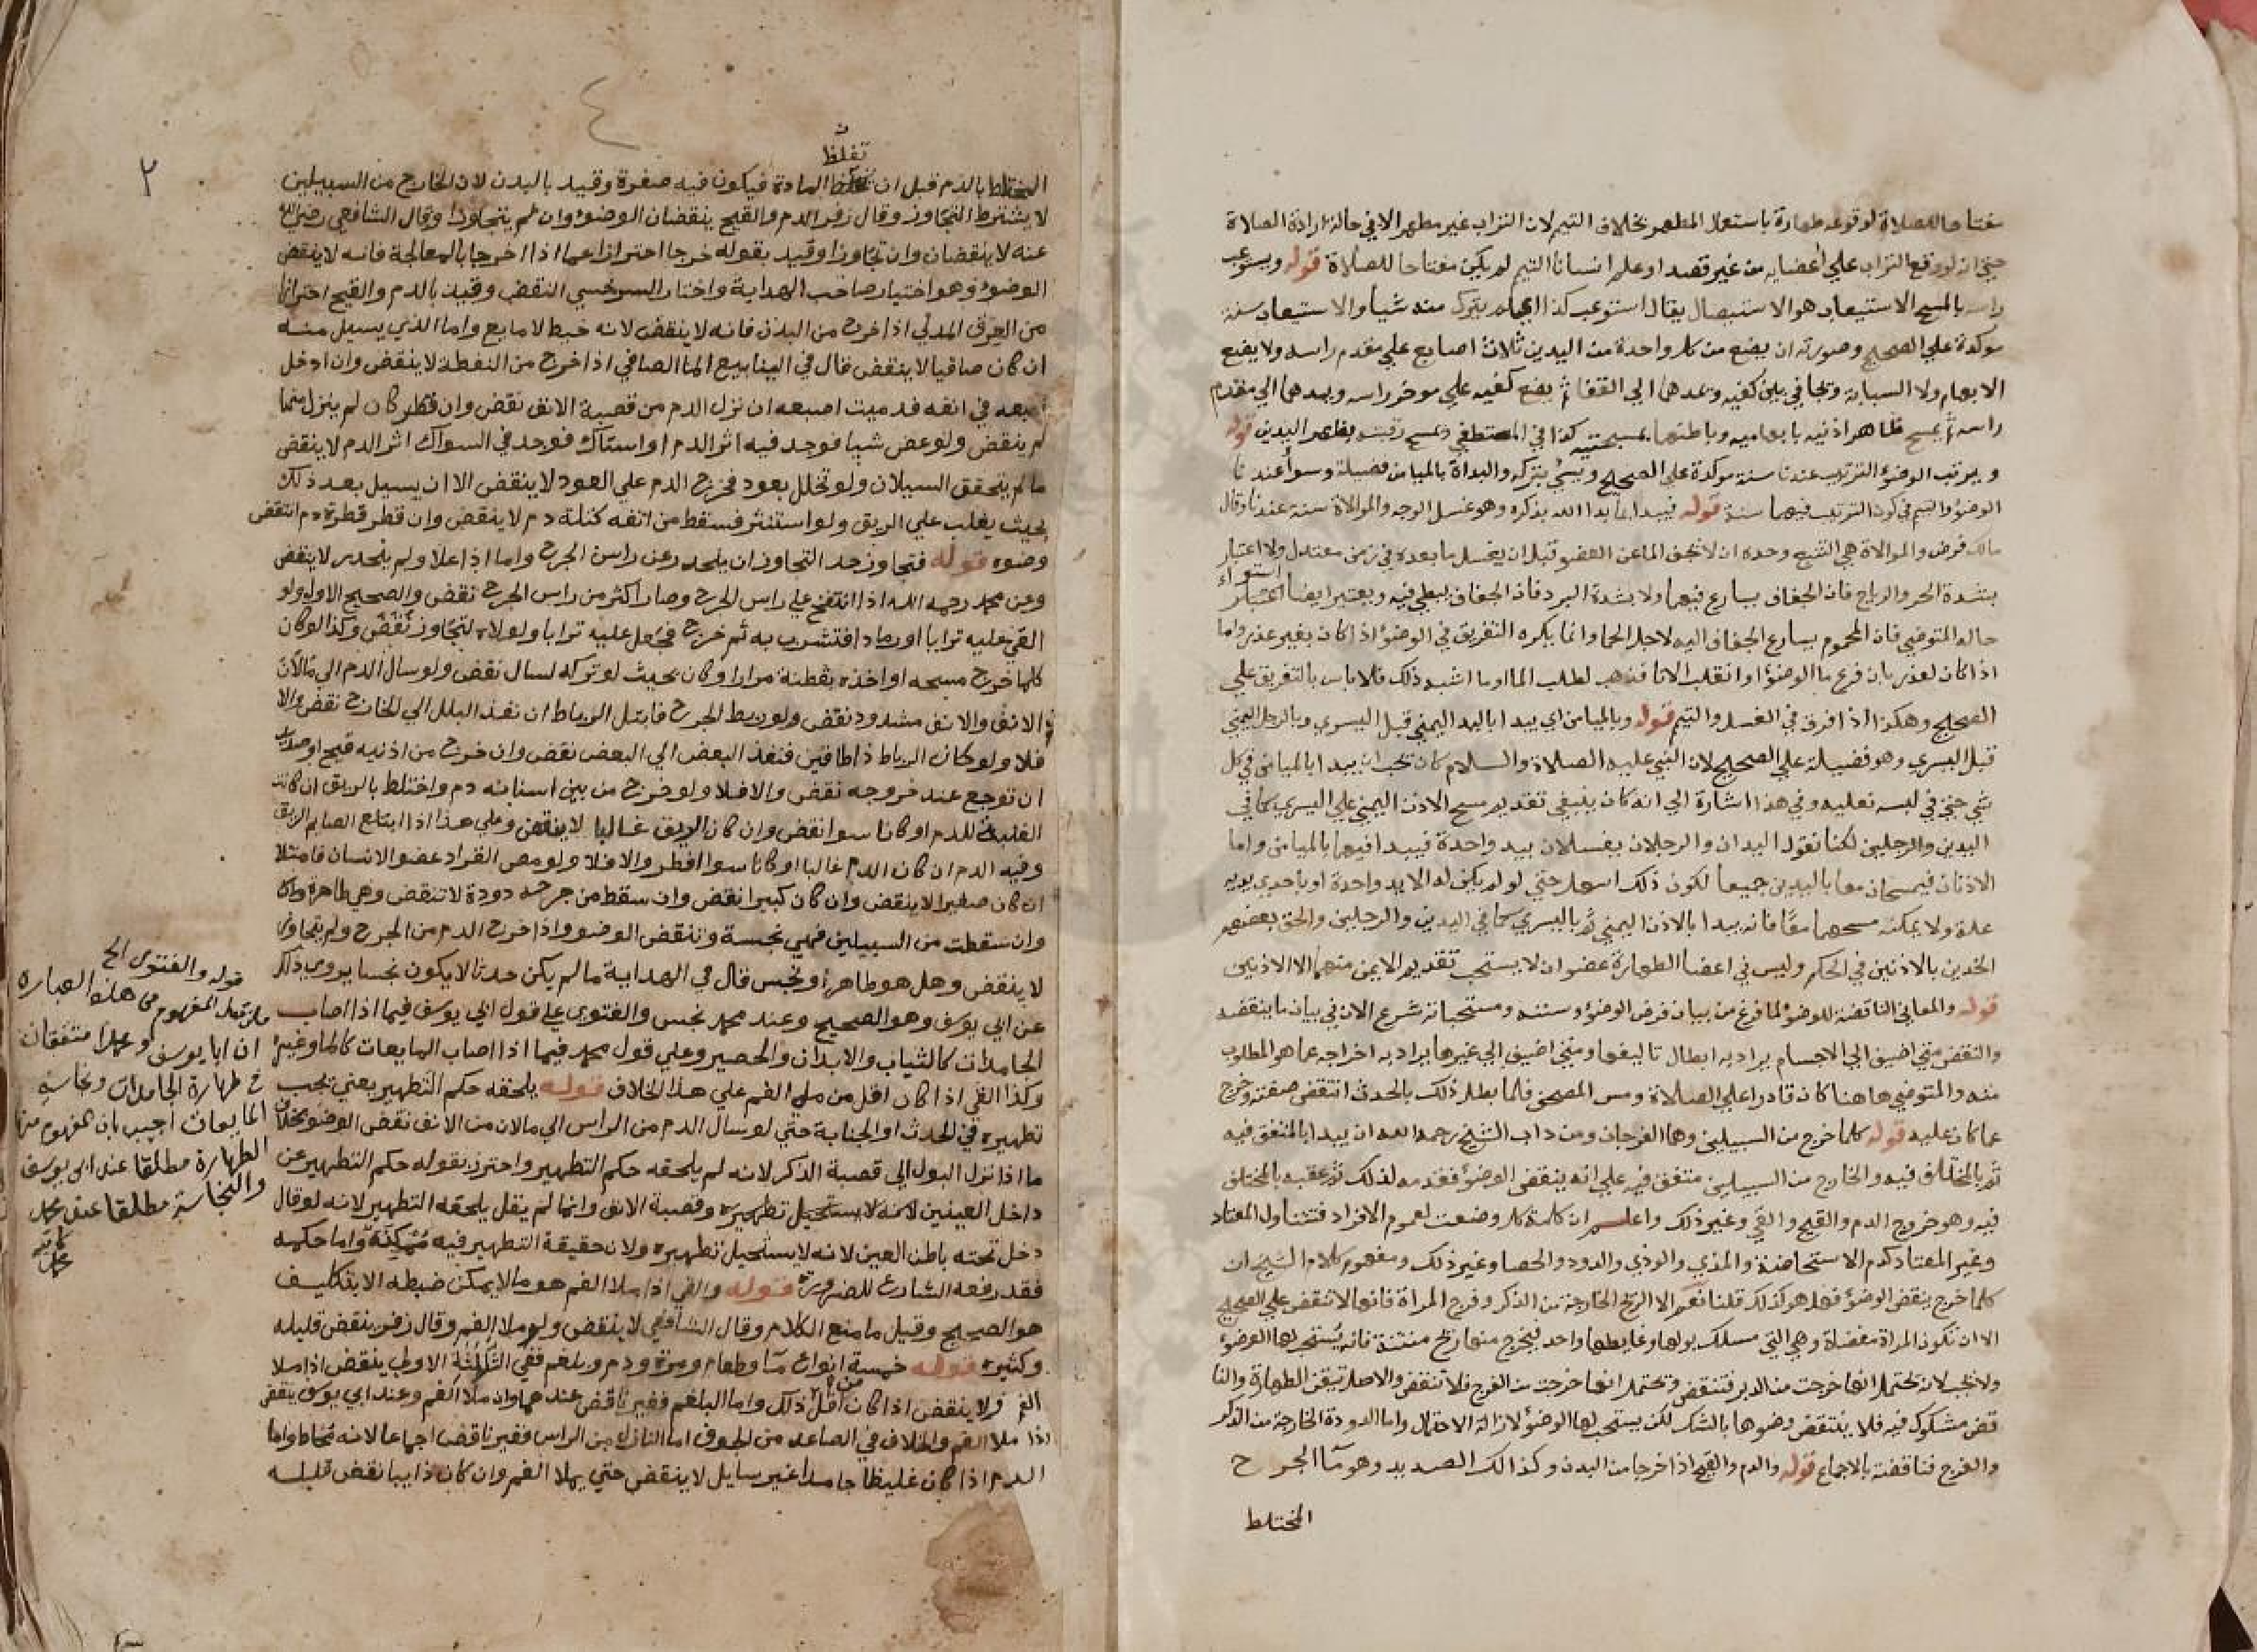 مفتاحا للصلاة لوقوعه طهارة باستعمال المطهر بخلاف التيمم لان التراب غير مطهر الا في حالة ارادة الصلاة
حتي انه لو وقع التراب علي اعضايه من غير قصد او علم انسانا التيمم لم يكن مفتاحا للصلاة قوله ويستوعب
راسه بالمسح الاستيعاب هو الاستيصال يقال استوعب كذا اي لم يترك منه شيأ والاستيعاب سنة
موكدة علي الصحيح وصورته ان يضع من كل واحدة من اليدين ثلاث اصابع علي مقدم راسه ولا يضع
الابهام ولا السبابة ويجافي بين كفيه ويمدهما الي القفا ثم يضع كفيه علي موخر راسه ويمدهما الي مقدم
راسه ثم يمسح ظاهر اذنيه بابهاميه وباطنهما بمسبحتيه كذا في المستصفي ويمسح رقبته بظاهر اليدين قوله
ويرتب الوضوء الترتيب عندنا سنة موكدة علي الصحيح ويسئ بتركه والبداة بالميامن فضيلة وسواء عندنا
الوضؤ والتيمم في كون الترتيب فيهما سنة قوله فيبدا بما بدا الله بذكره وهو غسل الوجه والموالاة سنة عندنا وقال
مالك فرض والموالاة هي التتابع وحده ان لا يجف الما عن العضو قبل ان يغسل ما بعده في زمن معتدل ولا اعتبار
بشدة الحر والرياح فان الجفاف يسارع فيهما ولا بشدة البرد فان الجفاف يبطي فيه ويعتبر ايضا استواء
حالة المتوضي فان المحموم يسارع الجفاف اليه لاجل الحما وانما يكره التفريق في الوضوء اذا كان بغير عذر واما
اذا كان لعذر بان فرغ ما الوضوء او انقلب الانا فذهب لطلب الما او ما اشبه ذلك فلا باس بالتفريق علي
الصحيح وهكذا اذا فرق في الغسل والتيمم قوله وبالميامن اي يبدا باليد اليمني قبل اليسري وبالرجل اليمني
قبل اليسري وهو فضيلة علي الصحيح لان النبي عليه الصلاة والسلام كان يحب ان يبدا بالميامن في كل
شي حتي في لبسه نعليه وفي هذا اشارة الي انه كان ينبغي تقديم مسح الاذن اليمني علي اليسري كما في
اليدين والرجلين لكنا نقول اليدان والرجلان يغسلان بيد واحدة فيبدا فيهما بالميامن واما
الاذنان فيمسحان معا باليدين جميعا لكون ذلك اسهل حتي لو لم يكن له الا يد واحدة او باحدي يديه
علة ولا يمكنه مسحهما معا فانه يبدا بالاذن اليمني ثم باليسري كما في اليدين والرجلين والحق بعضهم
الخدين بالاذنين في الحكم وليس في اعضا الطهارة عضوان لا يستحب تقديم الايمن منهما الا الاذنين
قوله والمعاني الناقضة للوضوء لما فرغ من بيان فرض الوضوء وسننه ومستحباته شرع الان في بيان ما ينقضه
والنقض متي اضيف الي الاجسام يراد به ابطال تاليفها ومتي اضيف الي غيرها يراد به اخراجه عما هو المطلوب
منه والمتوضي هاهنا كان قادرا علي الصلاة ومس المصحف فلما بطل ذلك بالحدث انتقض صفته وخرج
عما كان عليه قوله كلما خرج من السبيلين وهما الفرجان ومن داب الشيخ رحمه الله ان يبدا بالمتفق فيه
ثم بالمختلف فيه والخارج من السبيلين متفق فيه علي انه ينقض الوضوء فقدمه لذلك ثم عقبه بالمختلف
فيه وهو خروج الدم والقيح والقي وغير ذلك واعلم ان كلمة كل وضعت لعموم الافراد فتتناول المعتاد
وغير المعتاد كدم الاستحاضة والمذي والودي والدود والحصا وغير ذلك ومفهوم كلام الشيخ ان
كلما خرج ينقض الوضوء فهل هو كذلك قلنا نعم الا الريح الخارجة من الذكر وفرج المراة فانها لا تنقض علي الصحيح
الا ان تكون المراة مفضاة وهي التي مسلك بولها وغايطها واحد فيخرج منها ريح منتنة فانه يستحب لها الوضوء
ولا يجب لانه يحتمل انها خرجت من الدبر فتنقض ويحتمل انها خرجت من الفرج فلا تنقض والاصل تيقن الطهارة والنا
قض مشكوك فيه فلا ينتقض وضوها بالشك لكن يستحب لها الوضوء لازالة الاحتمال واما الدودة الخارجة من الذكر
والفرج فناقضة بالاجماع قوله والدم والقيح اذا خرجا من البدن وكذالك الصديد وهو ماء الجرح
المختلط
٤
٢
تغلظ
المختلط بالدم قبل ان المادة فيكون فيه صفرة وقيد بالبدن لان الخارج من السبيلين
لا يشترط التجاوز وقال زفر الدم والقيح ينقضان الوضوء وان لم يتجاوزا وقال الشافعي رضي الله
عنه لا ينقضان وان تجاوزا وقيد بقوله خرجا احترازا عما اذا اخرجا بالمعالجة فانه لا ينقض
الوضوء وهو اختيار صاحب الهداية واختار السرخسي النقض وقيد بالدم والقيح احترازا
من العرق المدني اذا خرج من البدن فانه لا ينقض لانه خيط لا مايع واما الذي يسيل منه
ان كان صافيا لا ينقض قال في الينابيع الما الصافي اذا خرج من النفطة لا ينقض وان ادخل
اصبعه في انفه فدميت اصبعه ان نزل الدم من قصبة الانف نقض وان قطر كان لم ينزل منها
لم ينقض ولو عض شيا فوجد فيه اثر الدم او استاك فوجد في السواك اثر الدم لا ينقض
ما لم يتحقق السيلان ولو تخلل بعود فخرج الدم علي العود لا ينقض الا ان يسيل بعد ذلك
بحيث يغلب علي الريق ولو استنثر فسقط من انفه كتلة دم لا ينقض وان قطر قطرة دم انتقض
وضوه قوله فتجاوز حد التجاوز ان ينحدر عن راس الجرح واما اذا علا ولم ينحدر لا ينقض
وعن محمد رحمه الله اذا انتفخ علي راس الجرح وصار اكثر من راس الجرح نقض والصحيح الاول ولو
القي عليه ترابا او رمادا فتشرب به ثم خرج فجعل عليه ترابا ولولاه لتجاوز نقض وكذا لو كان
كلما خرج مسحه او اخذه بقطنة مرارا وكان بحيث لو تركه لسال نقض ولو سال الدم الي ما لان
من الانف والانف مشدود نقض ولو ربط الجرح فابتل الرباط ان نفذ البلل الي الخارج نقض والا
فلا ولو كان الرباط ذا طاقين فنفذ البعض الي البعض نقض وان خرج من اذنيه قيح او صديد
ان توجع عند خروجه نقض والا فلا ولو خرج من بين اسنانه دم واختلط بالريق ان كانت
الغلبة للدم او كانا سوا نقض وان كان الريق غالبا لا ينقض وعلي هذا اذا ابتلع الصايم الريق
وفيه الدم ان كان الدم غالبا او كانا سوا افطر والا فلا ولو مص القراد عضو الانسان فامتلا
ان كان صغيرا لا ينقض وان كان كبيرا نقض وان سقط من جرحه دودة لا تنقض وهي طاهرة
وان سقطت من السبيلين فهي نجسة وتنقض الوضوء واذا خرج الدم من الجرح ولم يتجاوز
لا ينقض وهل هو طاهر او نجس قال في الهداية ما لم يكن حدثا لا يكون نجسا يروي ذلك
عن ابي يوسف وهو الصحيح وعند محمد نجس والفتوي علي قول ابي يوسف فيما اذا اصاب
الجامدات كالثياب والابدان والحصير وعلي قول محمد فيما اذا اصاب المايعات كالما وغيره
وكذا القي اذا كان اقل من ملء الفم علي هذا الخلاف قوله يلحقه حكم التطهير يعني يجب
تطهيره في الحدث او الجنابة حتي لو سال الدم من الراس الي ما لان من الانف نقض الوضوء بخلاف
ما اذا نزل البول الي قصبة الذكر لانه لم يلحقه حكم التطهير واحترز بقوله حكم التطهير عن
داخل العينين لانه لا يستحيل تطهيره وقصبة الانف وانما لم يقل يلحقه التطهير لانه لو قال
دخل تحته باطن العين لانه لا يستحيل تطهيره ولان حقيقة التطهير فيه ممكنة واما حكمه
فقد رفعه الشارع للضرورة قوله والقي اذا ملا الفم هو ما لا يمكن ضبطه الا بتكليف
هو الصحيح وقيل ما منع الكلام وقال الشافعي لا ينقض ولو ملا الفم وقال زفر ينقض قليله
وكثيره قوله خمسة انواع ماء وطعام ومرة ودم وبلغم ففي الثلاثة الاولي ينقض اذا ملا
الفم ولا ينقض اذا كان اقل من ذلك واما البلغم فغير ناقض عندهما وان ملا الفم وعند ابي يوسف ينقض
اذا ملا الفم والخلاف في الصاعد من الجوف اما النازل من الراس فغير ناقض اجماعا لانه مخاط واما
الدم اذا كان غليظا جامدا غير سايل لا ينقض حتي يملا الفم وان كان ذايبا نقض قليله
قوله والفتوى الخ
المفهوم من هذه العباره
ان ابا يوسف ومحمدا متفقان
في طهارة الجامدات ونجاسة
المايعات اجيب بان المفهوم منها
الطهارة مطلقا عند ابي يوسف
والنجاسة مطلقا عند محمد